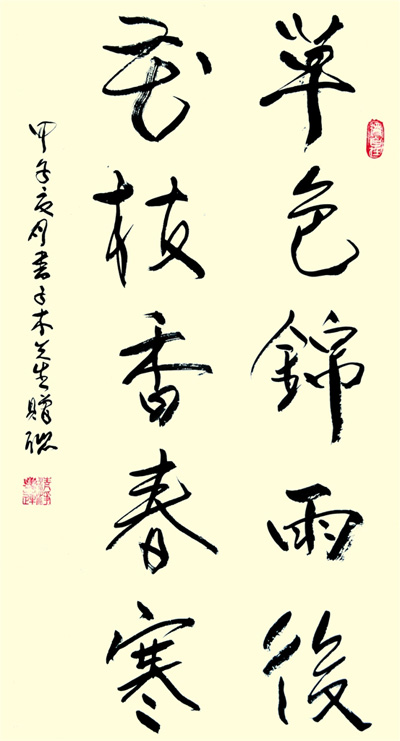 草色錦雨後
花枝香春寒
甲午亥月書子木先生贈聯